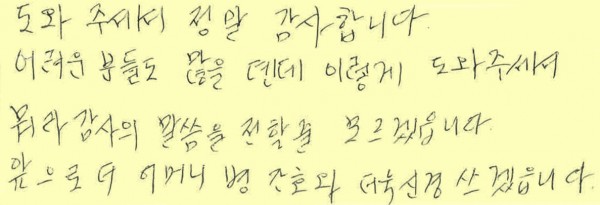 도와 주셔서 정말 감사합니다.
어려운 분들도 많을 텐데 이렇게 도와주셔서
뭐라 감사의 말씀을 전할줄 모르겠읍니다.
앞으로 더 어머니 병 간호와 더욱신경 쓰겠읍니다.